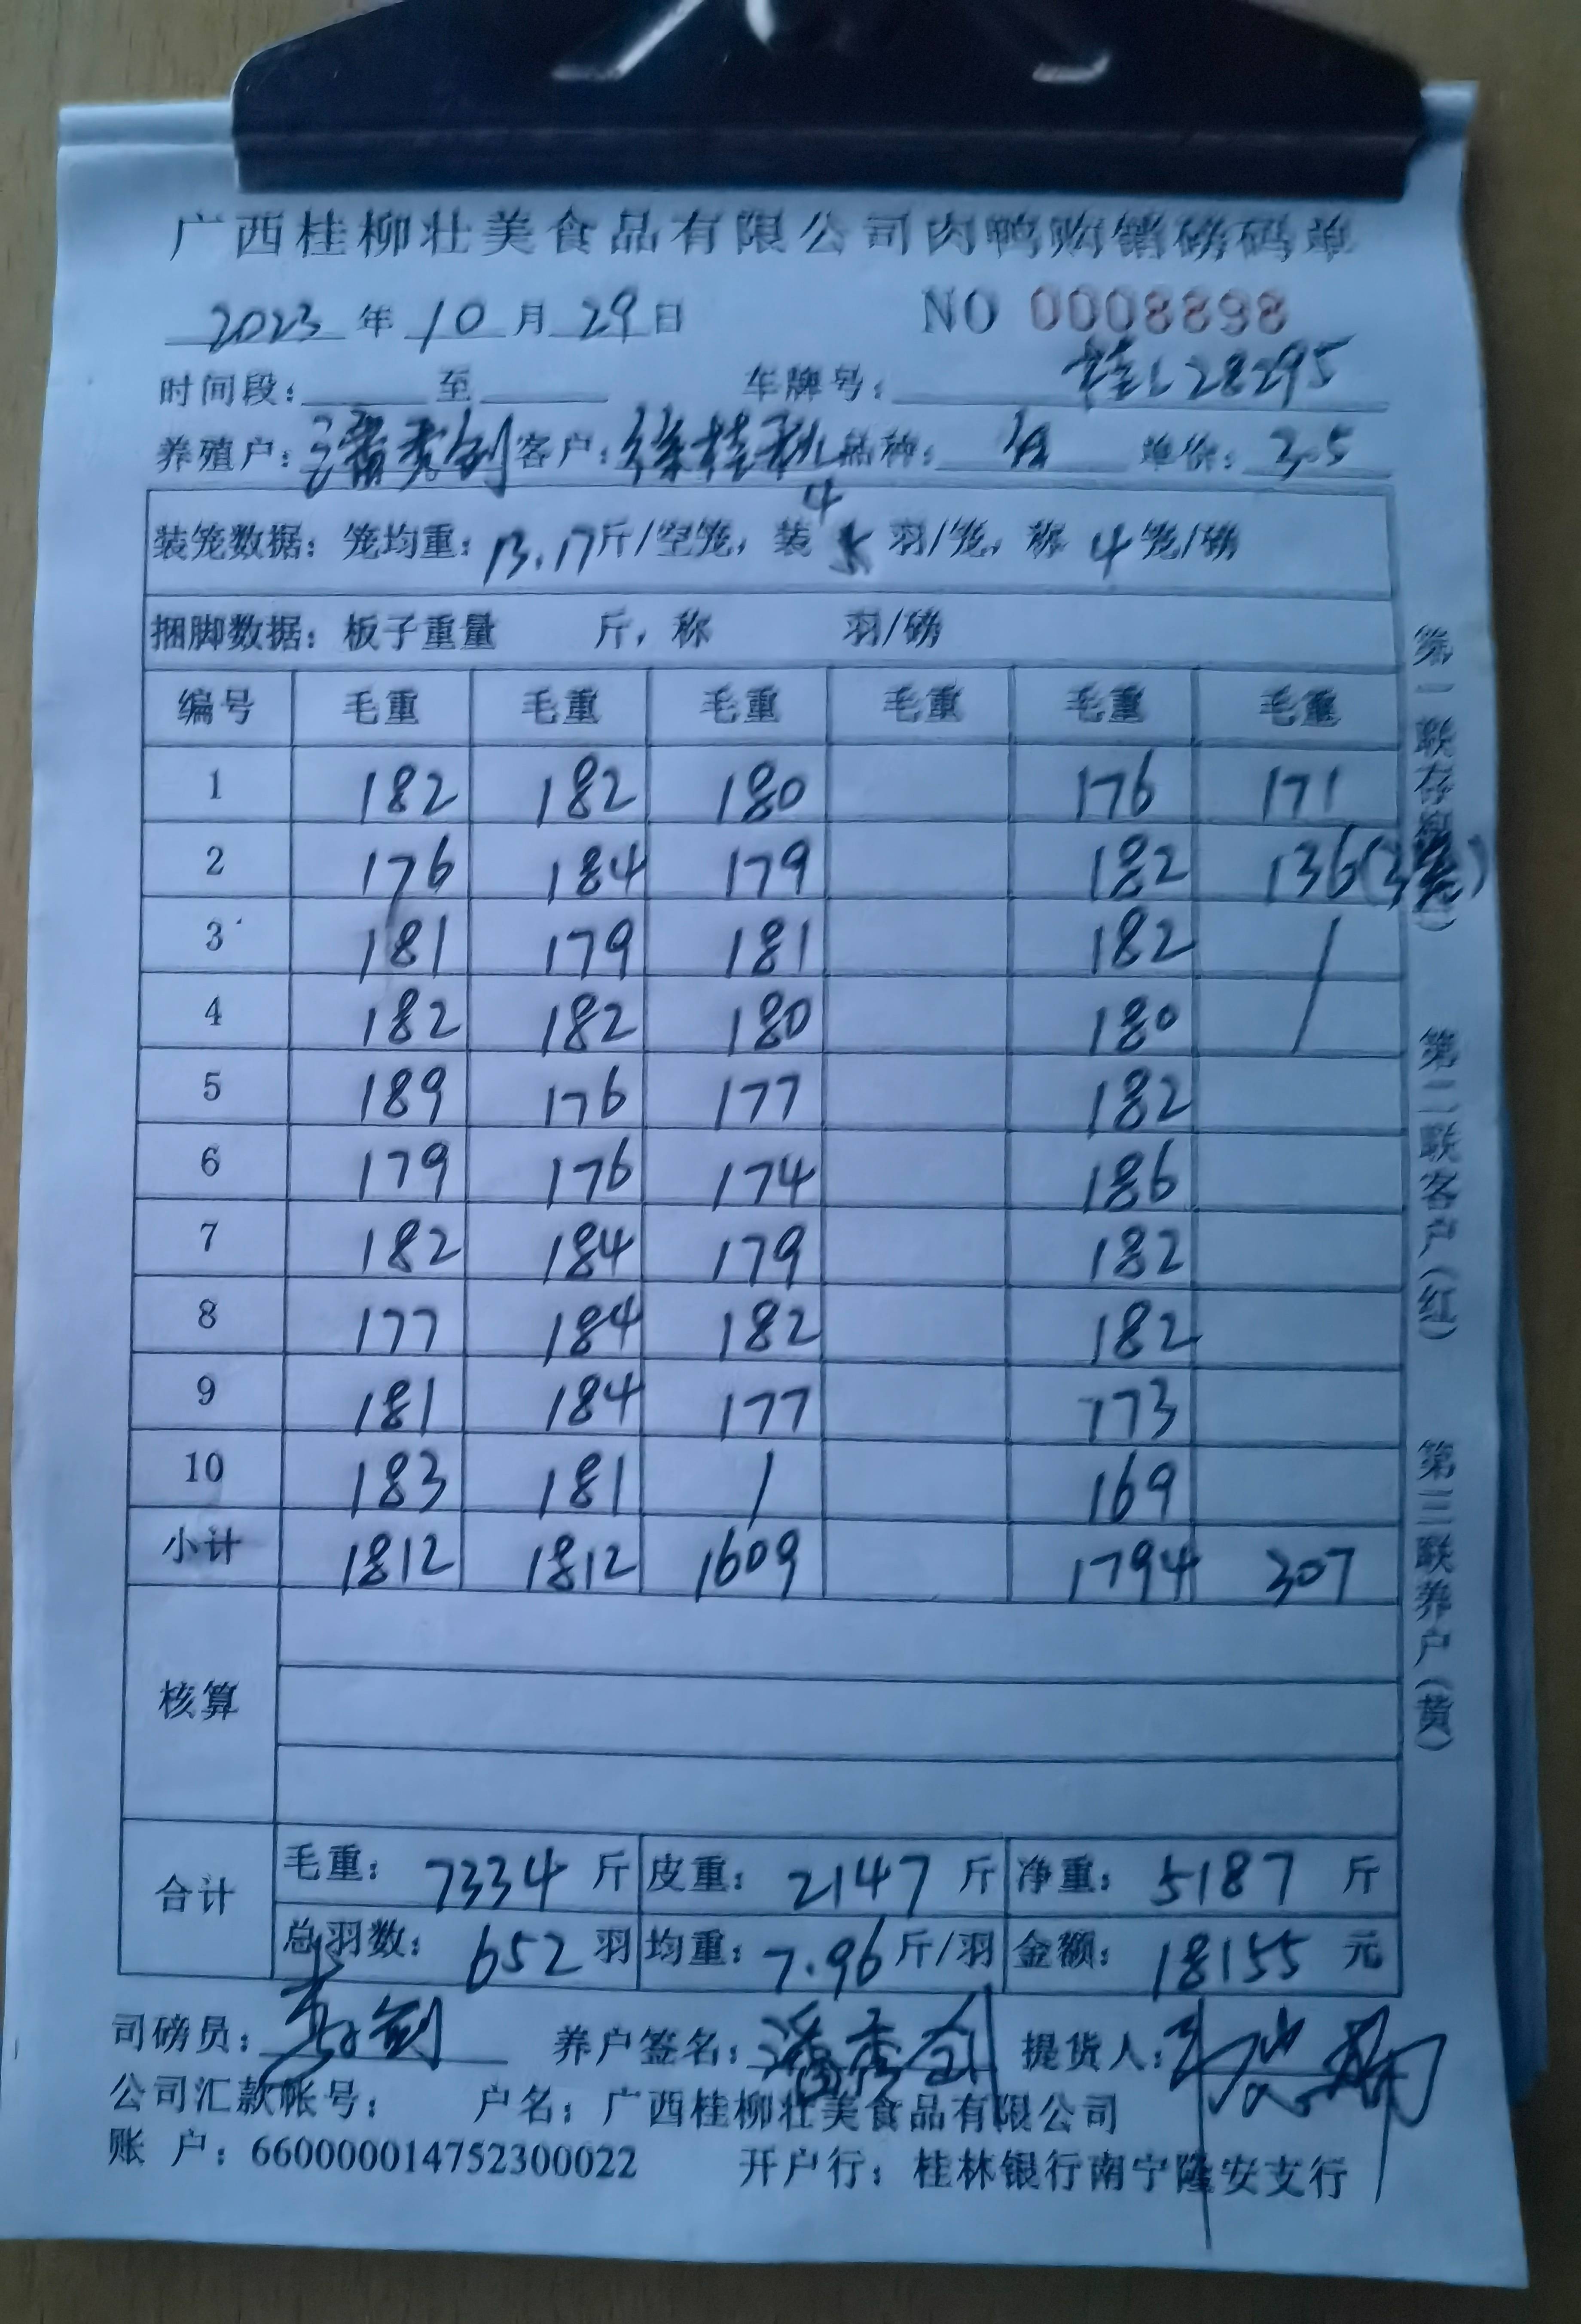 广西桂柳壮美食品有限公司肉鸭购销磅码单
2023 年 10 月 29 日 NO 0008898
时间段: 至 车牌号: 桂L28295
养殖户: 潘秀剑 客户: 徐桂秋 品种: 单价: 3.5
装笼数据: 笼均重: 13.17 斤/空笼, 装 4 羽/笼, 称 4 笼/磅
捆脚数据: 板子重量 斤, 称 羽/磅
编号 毛重 毛重 毛重 毛重 毛重 毛重
1 182 182 180 176 171
2 176 184 179 182 136(3笼)
3 181 179 181 182 /
4 182 182 180 180
5 189 176 177 182
6 179 176 174 186
7 182 184 179 182
8 177 184 182 182
9 181 184 177 173
10 183 181 / 169
小计 1812 1812 1609 1794 307
核算
合计 毛重: 7334 斤 皮重: 2147 斤 净重: 5187 斤
总羽数: 652 羽 均重: 7.96 斤/羽 金额: 18155 元
司磅员: 养户签名: 潘秀剑 提货人:
公司汇款帐号: 户名: 广西桂柳壮美食品有限公司
账 户: 660000014752300022 开户行: 桂林银行南宁隆安支行
第一联存根
第二联客户(红)
第三联养户(黄)